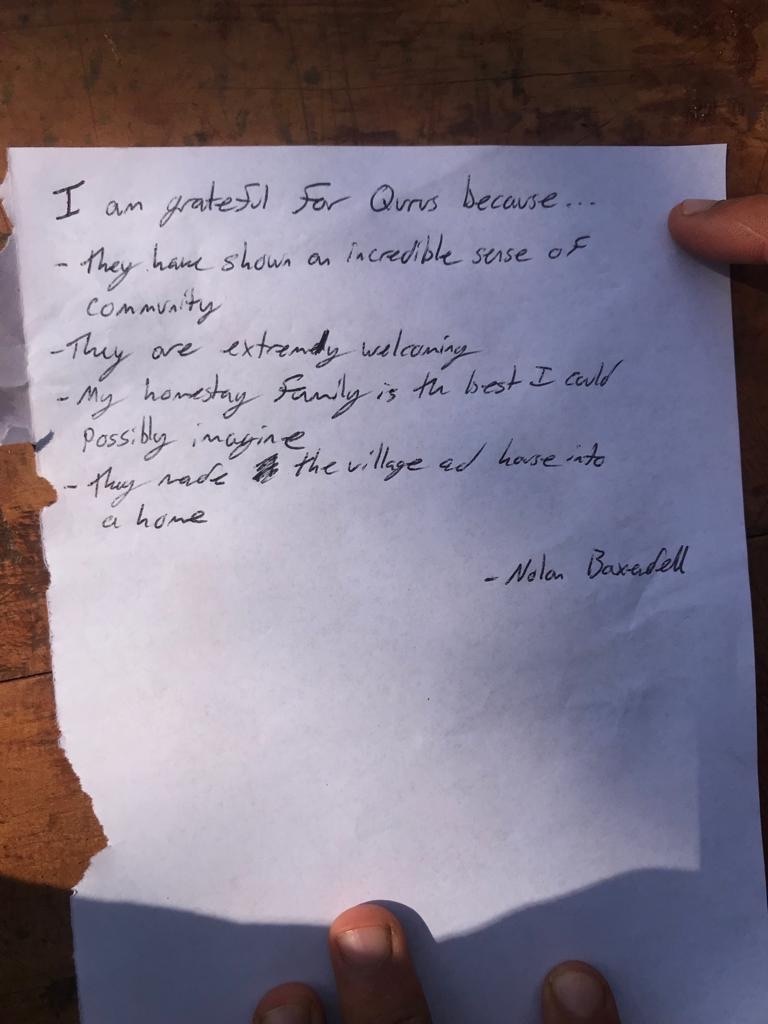 I am grateful for Qurus because...
- they have shown an incredible sense of
community
- They are extremely welcoming
- My homestay family is th best I could
possibly imagine
- they made the village ad house into
a home
- Nolan